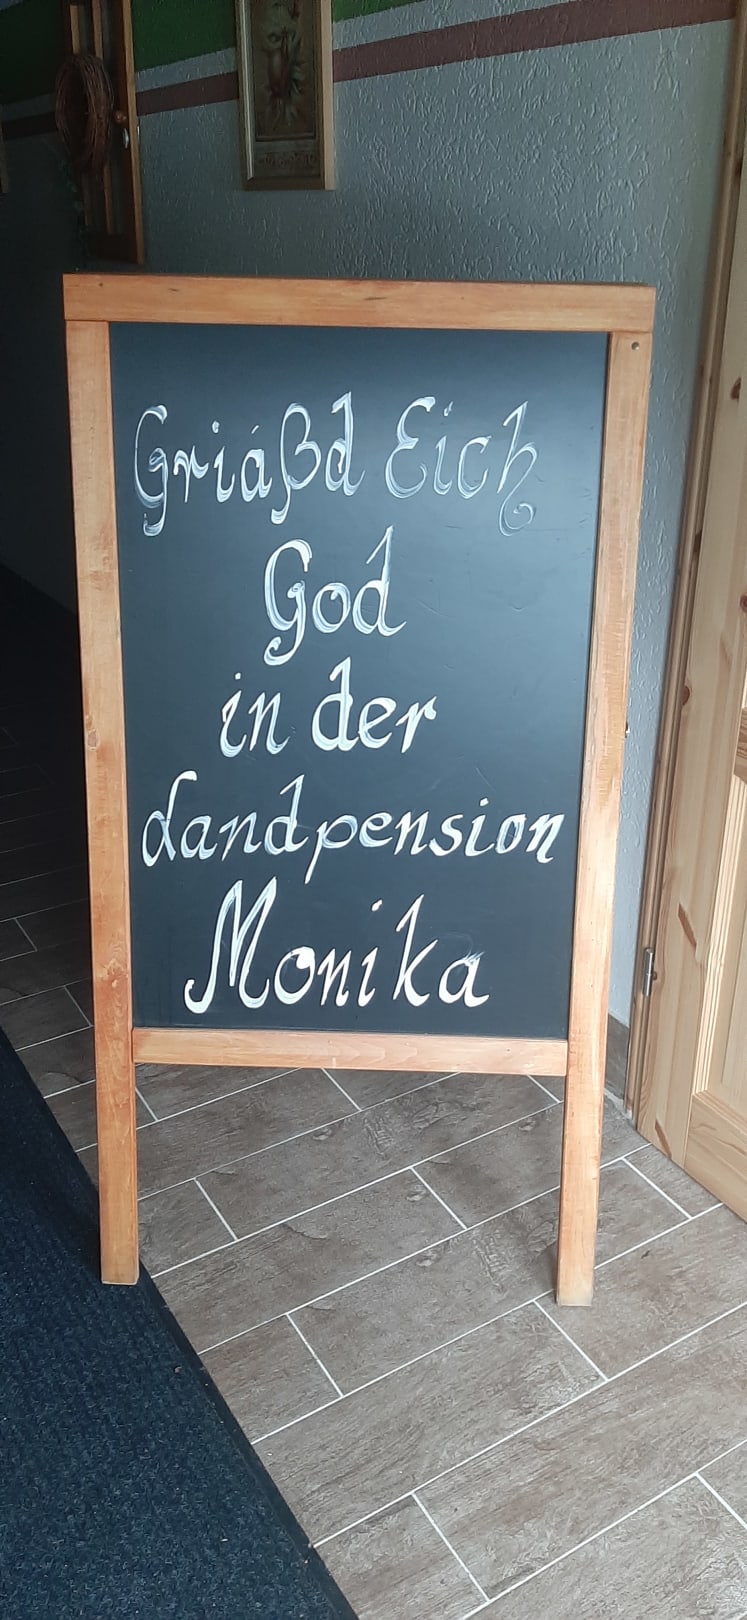 Griáßd Eich
God
in der
Landpension
Monika